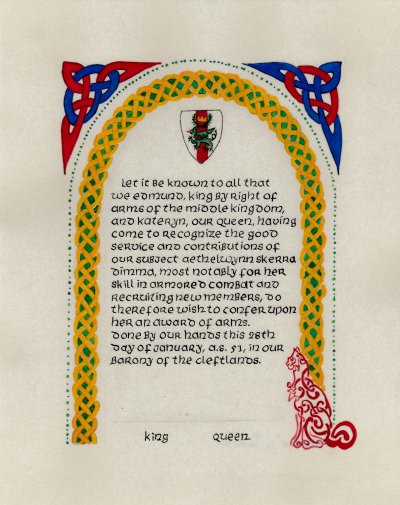 Let it be known to all that
we Edmund, King by right of
arms of the Middle Kingdom,
and Kateryn, our Queen, having
come to recognize the good
service and contributions of
our subject Aethelwynn Skerra
Dimma, most notably for her
skill in armored combat and
recruiting new members, do
therefore wish to confer upon
her an Award of Arms.
Done by our hands this 28th
day of January, a.s. 51, in our
Barony of the Cleftlands.
King Queen